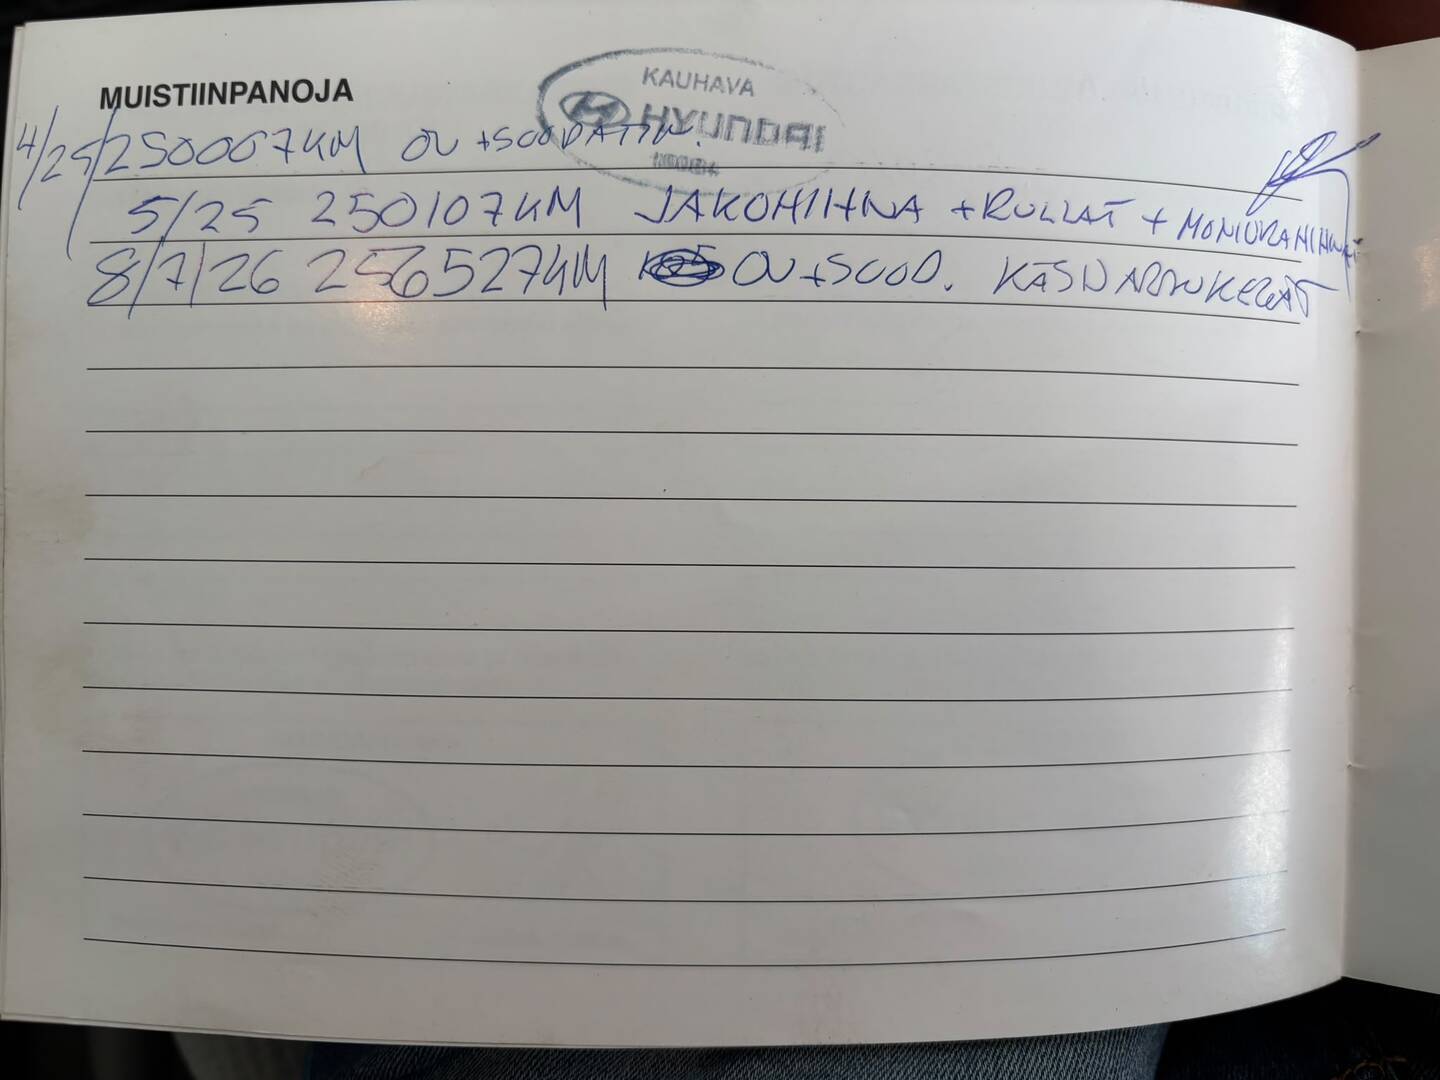 MUISTIINPANOJA
KAUHAVA
HYUNDAI
4/25 250067KM ÖV +SUODATIN.
5/25 250107KM JAKOHIHNA +RULLAT + MONIURAHIHNAT
8/7/26 256527KM ÖV +SUOD. KÄSIJARRUKENGÄT